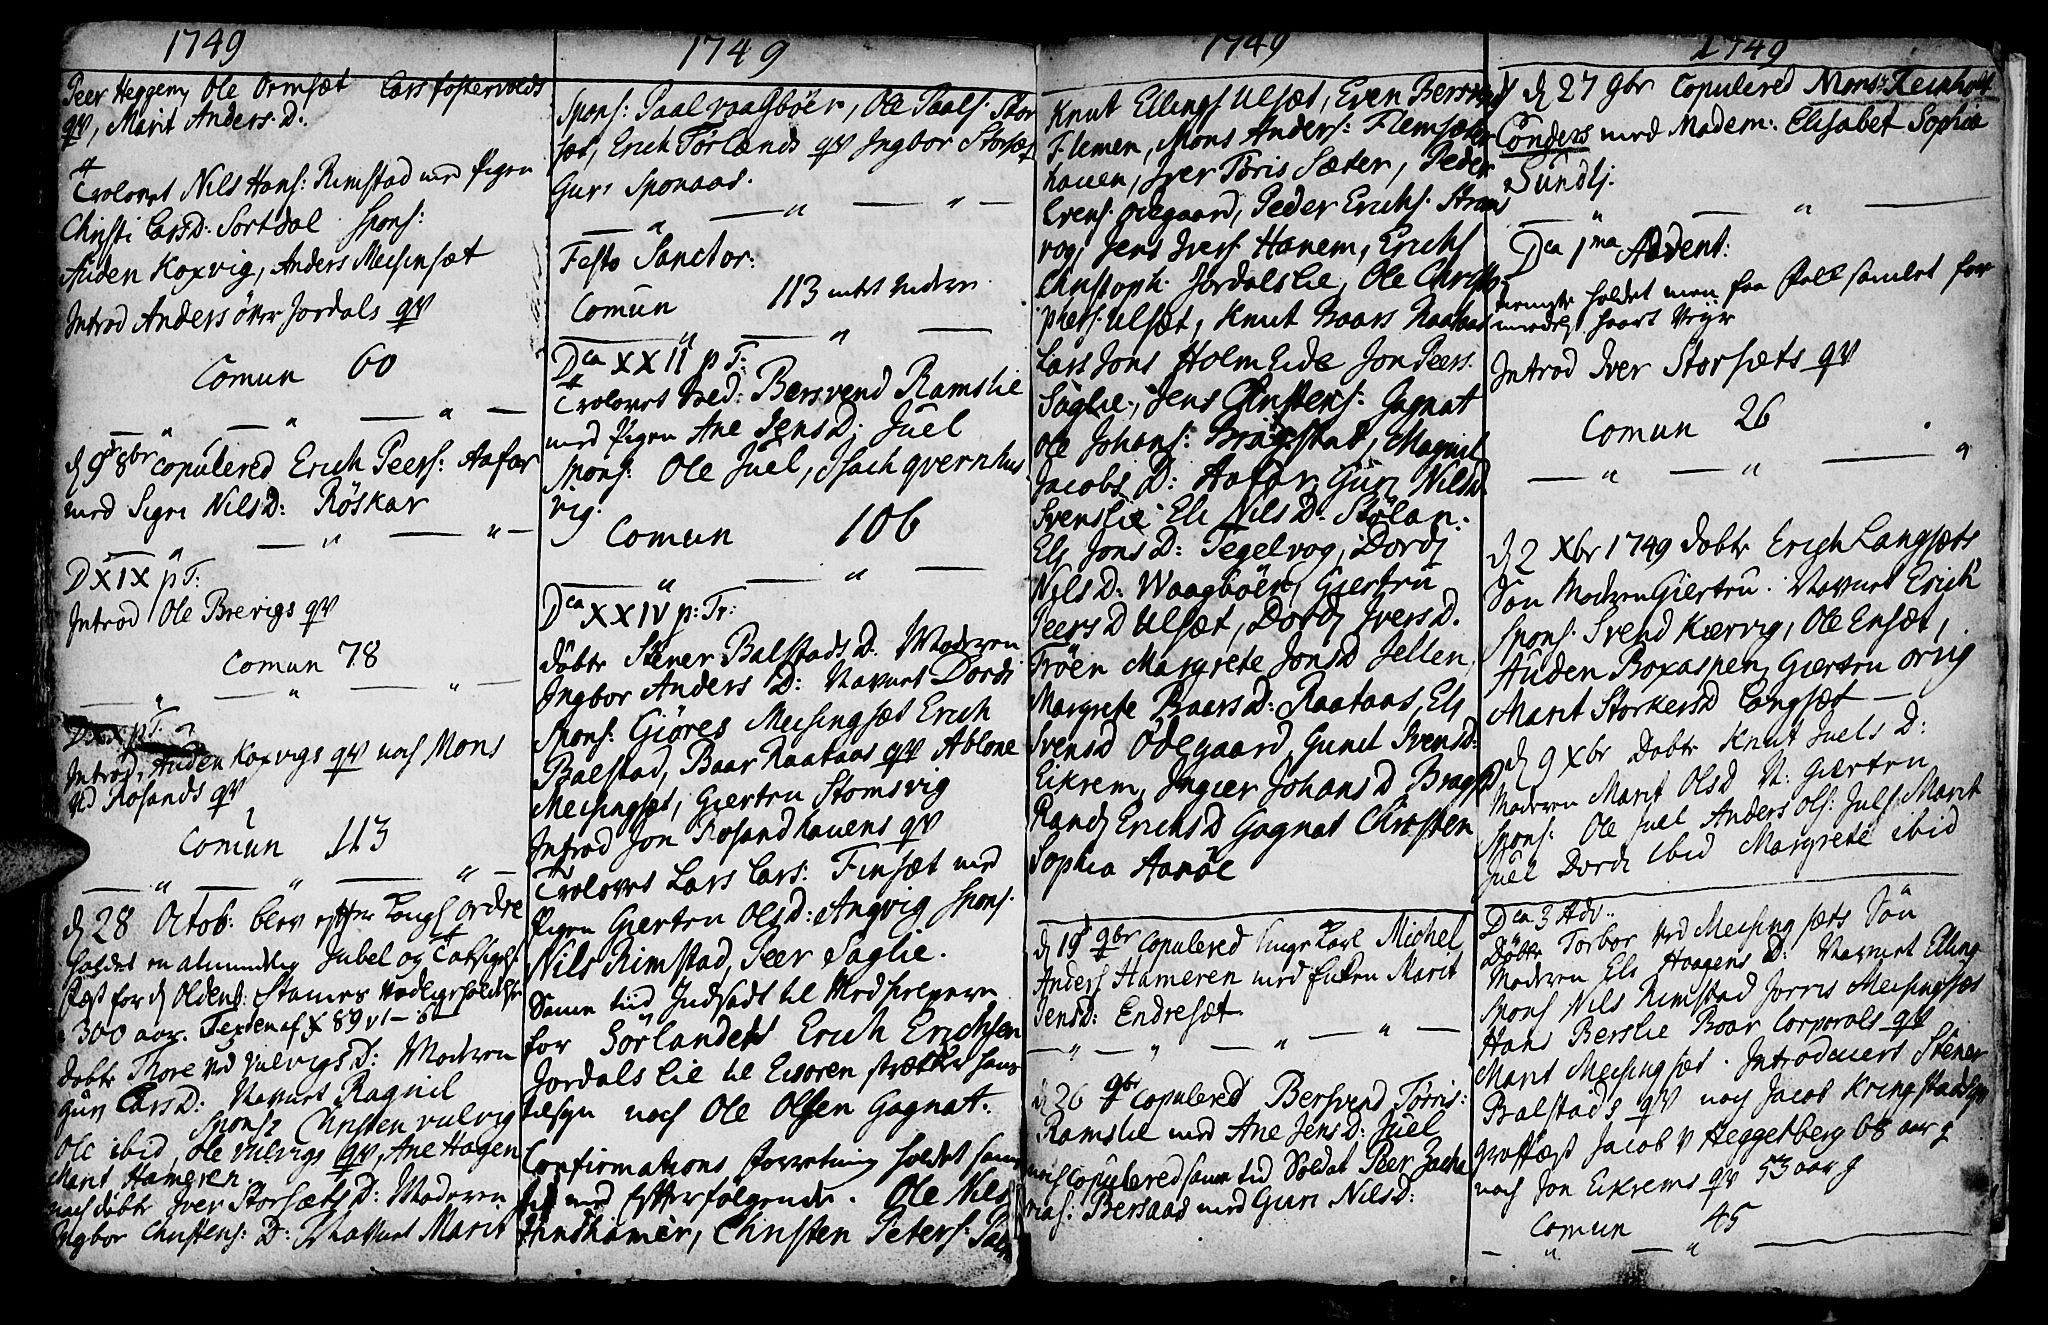 1749
Peer Heggem, Ole Ormsæt Lars fostervolds
qv, Marit Anders D:
Trolovet Nils Hans: Rimstad med Pigen
Christi Lars D: Sortdal Spons:
Auden Koxvig, Anders Meisinsæt
Introd Anders över Jordals qv
Comun 60
d 9de 8br Copulered Erich Peers: Aafar
med Sigri Nils D: Röskar
D XIX p T:
Introd Ole Brevigs qv
Comun 78
D XX p T:
Introd, Auden Koxvigs qv noch Mons
Ved Rosands qv
Comun 113
d 28 Octob: blev efter Kongl ordre
holdet en almindelig Jubel og Taksigels
fæst for d Oldenb: Stames Vedligeholdelse
i 300 aar. Texten af X 89 v 1-6
döbte Thore ved Vulvigs D: Moderen
Guri Lars D: Navnet Ragnil
Spons: Christen vulvig
Ole ibid, Ole Vulvigs qv, Ane Hagen
Marit Hameren.
noch döbte Iver Storsæts D: Moderen
Ingbor Christens: D: Navnet Marit
1749
Spons: Paal vaagböen, Ole Paals: Stor
sæt, Erich Törlands qv Ingbor Storsæt
Guri Sponaas.
Festo Sanctor:
Comun 113
Dca XXII p T:
Trolovet Sold: Bersvend Ramslie
med Pigen Ane Jens D: Juel
Spons: Ole Juel, Isach qvernhus
vig.
Comun 106
Dca XXIV p: Tr:
döbte Stener Balstads D. Moderen
Ingbor Anders D: Navnet Dordi
Spons: Giöres Meisingsæt Erich
Balstad, Baar Raataas qv Ablone
Meisingset, Giertru Stomsvig
Introd Jon Rosandhauens qv
Trolovet Lars Lars: Finsæt med
Pigen Giertru Ols D: Angvig Spons.
Nils Rimstad, Peer Saglie.
Samme tiid Indsadt til Medhielpere
for Sörlandet Erich Erichsen
Jordalslie til Eisoren strækker hans
tilsyn noch Ole Olsen Gagnat.
Confirmations forretning holdet samme
med Efterfølgende. Ole Nils
Hindhamer, Christen Peters:
1749
Knut Ellings Ulsæt, Even Bersvend
Flemen, Mons Anders: Flemsæter
hauen, Iver Töris Sæter, Peder
Evens. Odegaard, Peder Erichs. Strans
vog, Jens Ivers. Hanem, Erich
Christoph. Jordalslie, Ole Christo
phers: Ulsæt, Knut Baars Raataas
Lars Jons Holm Eide Jon Peers.
Saglie, Jens Christens: Gagnat
Ole Johans: Bragstad, Magnil
Jacobs D: Aafar, Guri Nils D.
Svenslie Eli Nils D. Stölan.
Els Jons D: Tegelvog, Dordi
Nils D: Waagböen, Giertru
Peers D Ulsæt, Dordi Ivers D.
Tröen Margrete Jons D Jellen,
Margrete Baars D: Raataas, Els
Svens D Odegaard, Gunil Svens D:
Eikrem, Ingier Johans D Bragst
Randi Erichs D Gagnat Christen
Sophia Aanöe
d 19de 9br Copulered Karl Michel
Anders Hameren med Enken Marit
Jens D: Endresæt
d 26 9br Copulered Bersvend Törris:
Ramslie med Ane Jens D: Juel
noch Copulered same tid Soldat Peer Zacha
rias: Bersaas med Guri Nils D:
1749
d 27 9br Copulered Mons: Reinholt
Conders med Madem: Elisabet Sophia
Sundtj.
Dca 1ma Advent:
tieniste holdet men faa Folk samlet for
medelst haart Veyr
Introd Iver Storsæts qv
Comun 26
d 2 Xbr 1749 döbte Erich Langsæts
Sön Moderen Giertru. Navnet Erich
Spons. Svend Kærvig, Ole Ensæt,
Auden Boxaspen, Giertru orvig
Marit Storkers D Langsæt
d 9 Xbr Dobte Knut Juels D:
Moderen Marit Ols D N: Giertru
Spons: Ole Juel Anders Ols: Juls: Marit
Juel Dordi ibid Margrete ibid
Dca 3 Adv:
Döbte Torbor ved Meisingsæts Sön
Moderen Els Haagens D: Navnet Elling
Spons Nils Rimstad Jorris Meisingsæt
Hans Berslie Baar Corporals qv
Marit Meisingsæt. Introducers Stener
Balstads qv noch Jacob Kringstads qv
graffæst Jacob v Heggelberg 68 aar g
noch Jon Eikrems qv 53 aar g
Comun 45